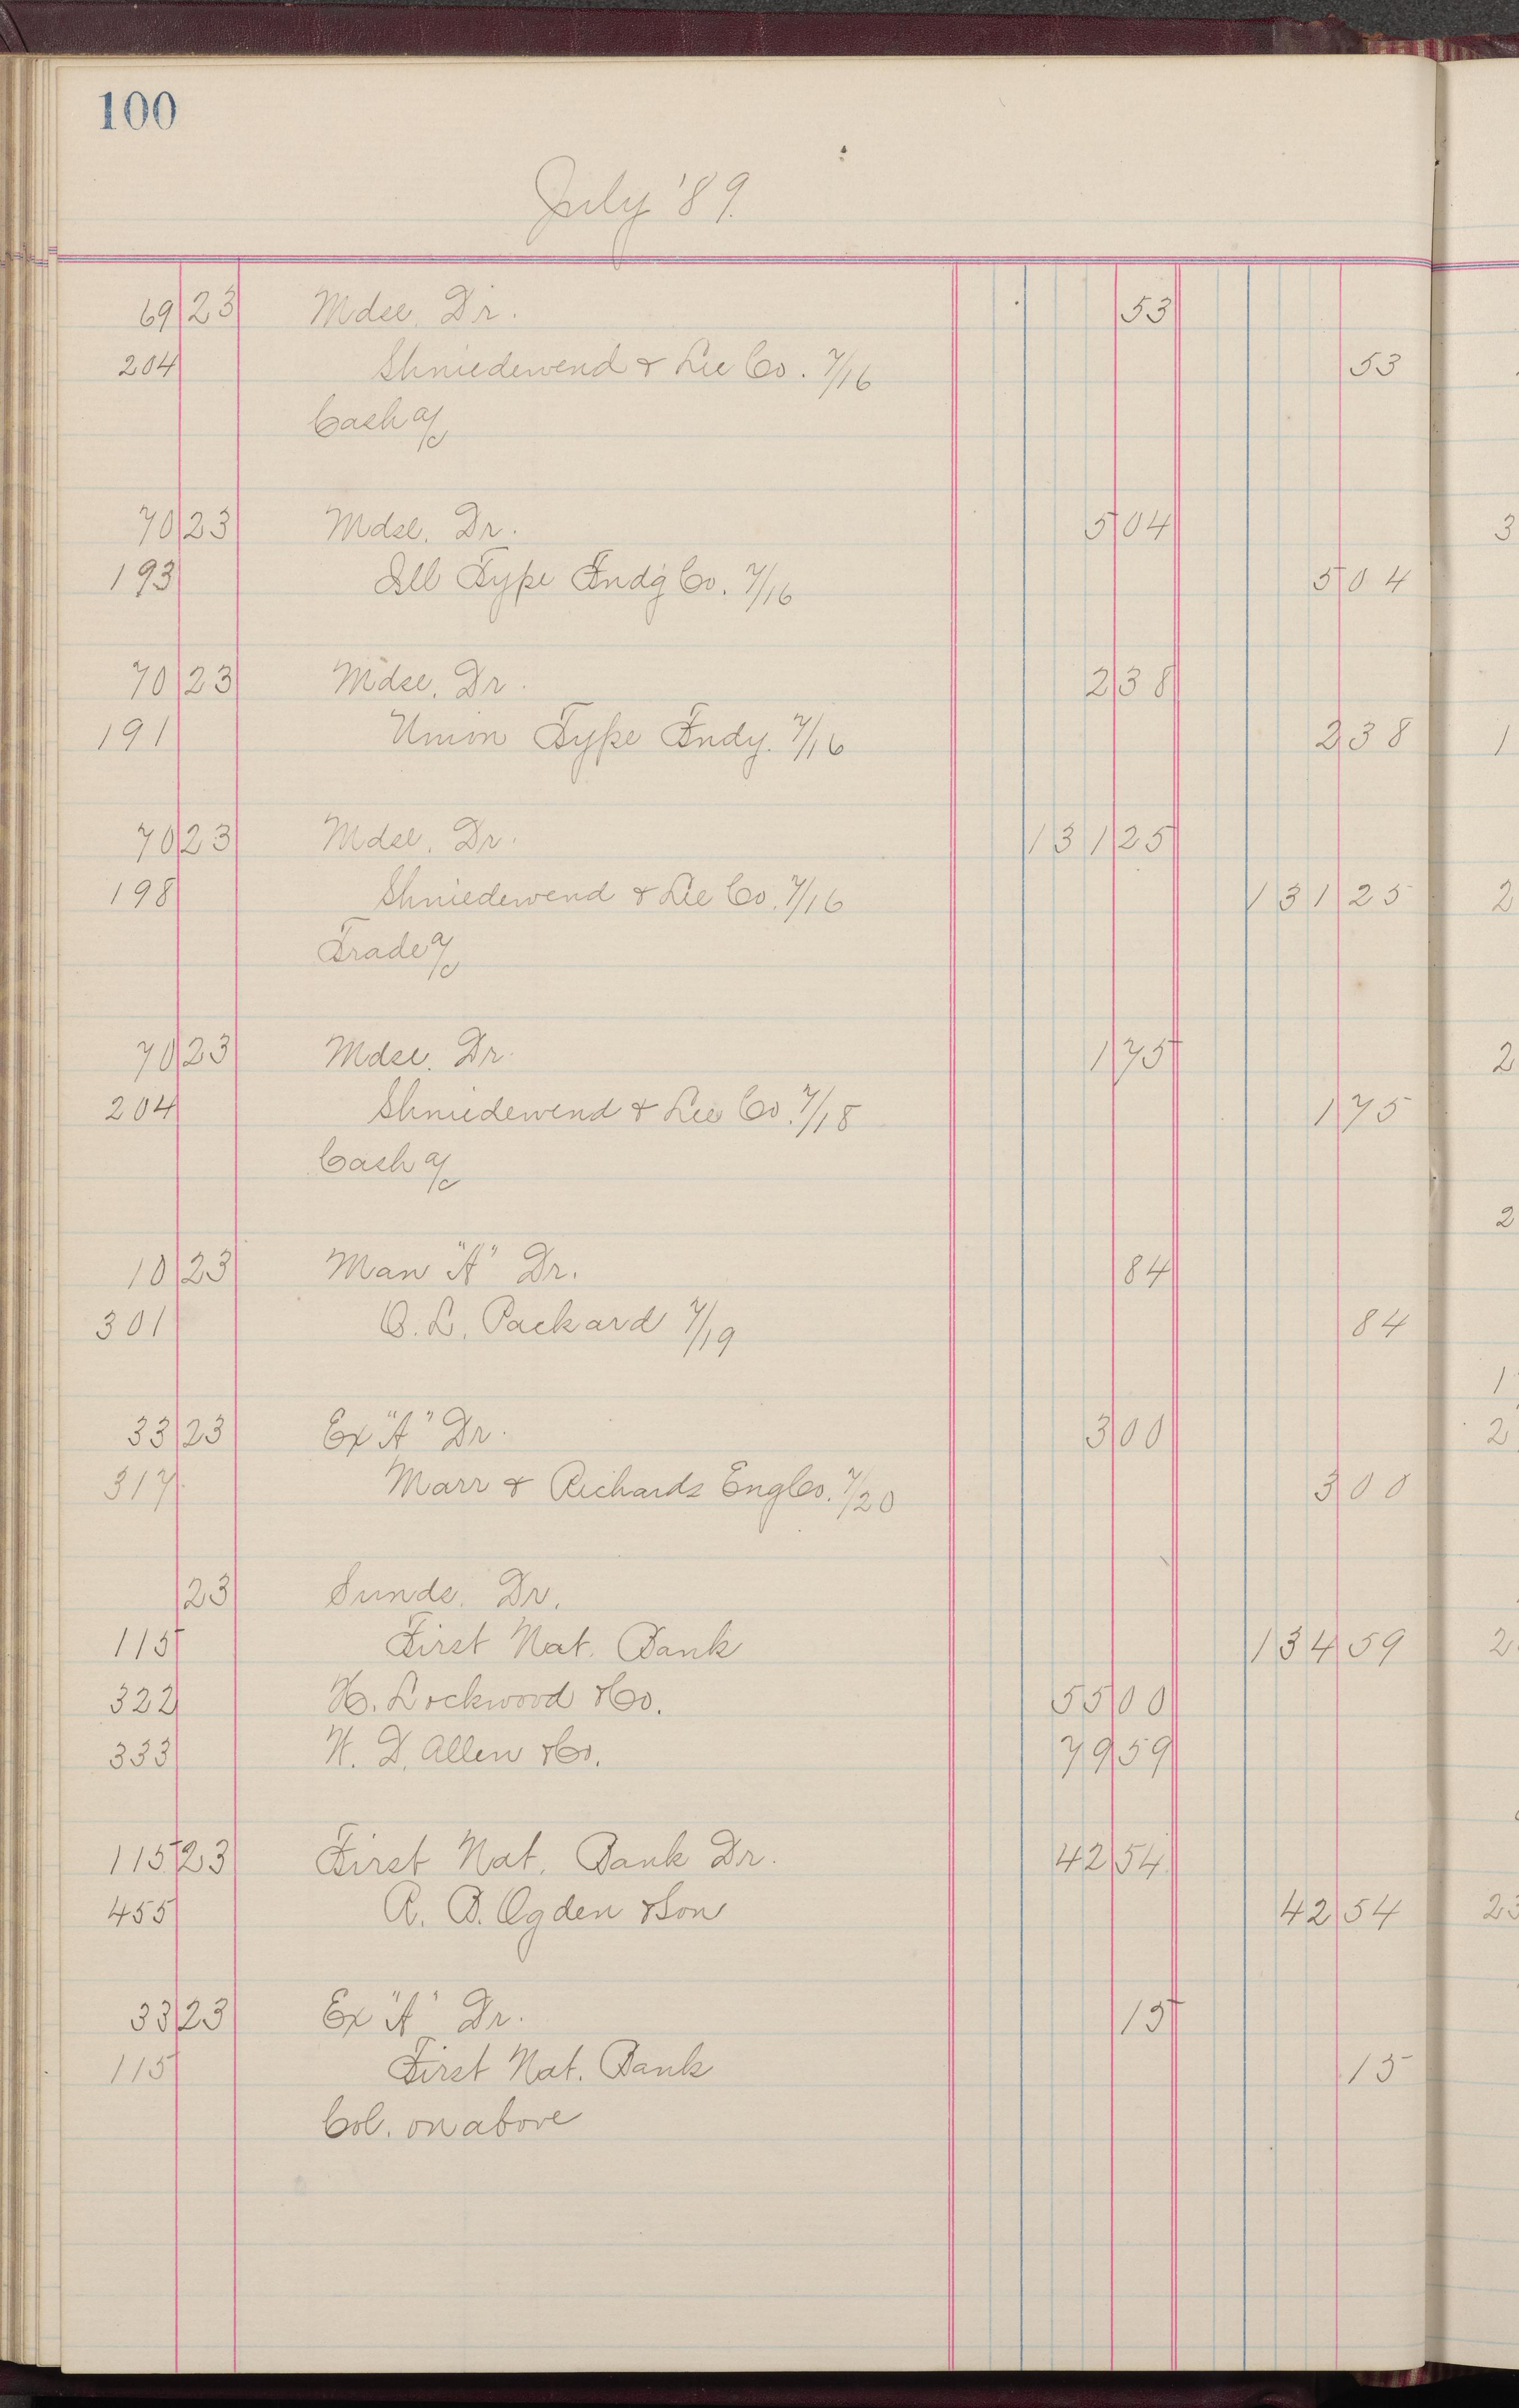 100
July '89.
69 23 Mdse. Dr. 53
204 Shniedewend & Lee Co. 7/16 53
Cash a/c
70 23 Mdse. Dr. 5 04
193 Ill Type Fndg Co. 7/16 5 04
70 23 Mdse. Dr. 2 38
191 Union Type Fndy. 7/16 2 38
70 23 Mdse. Dr. 131 25
198 Shniedewend & Lee Co. 7/16 131 25
Trade a/c
70 23 Mdse. Dr. 1 75
204 Shniedewend & Lee Co. 7/18 1 75
Cash a/c
10 23 Man "A" Dr. 84
301 O. L. Packard 7/19 84
33 23 Ex "A" Dr. 3 00
317 Marr & Richards Eng Co. 7/20 3 00
23 Sunds. Dr.
115 First Nat. Bank 134 59
322 H. Lockwood & Co. 55 00
333 W. D. Allen & Co. 79 59
115 23 First Nat. Bank Dr. 42 54
455 R. B. Ogden & Son 42 54
33 23 Ex "A" Dr. 15
115 First Nat. Bank 15
Col. on above